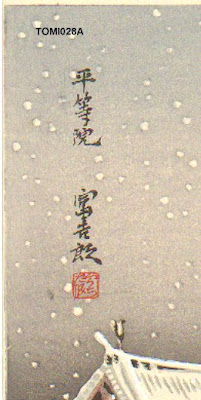 TOMI028A
平等院
富吉郎